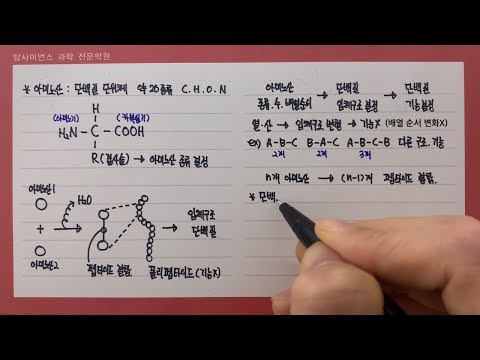 탑사이언스 과학 전문학원
* 아미노산 : 단백질 단위체 약 20종류 C.H.O.N
(아미노기) H (카복실기)
H₂N-C-COOH
R(곁사슬) → 아미노산 종류 결정
아미노산1
H₂O
+
아미노산2
펩타이드 결합
폴리펩타이드(기능X)
→ 입체구조 단백질
아미노산 종류.수.배열순서 → 단백질 입체구조 결정 → 단백질 기능 결정
열.산 → 입체구조 변형 → 기능X (배열 순서 변화X)
ex) A-B-C B-A-C A-B-C-B 다른 구조.기능
2개 2개 3개
n개 아미노산 → (n-1)개 펩타이드 결합.
* 단백